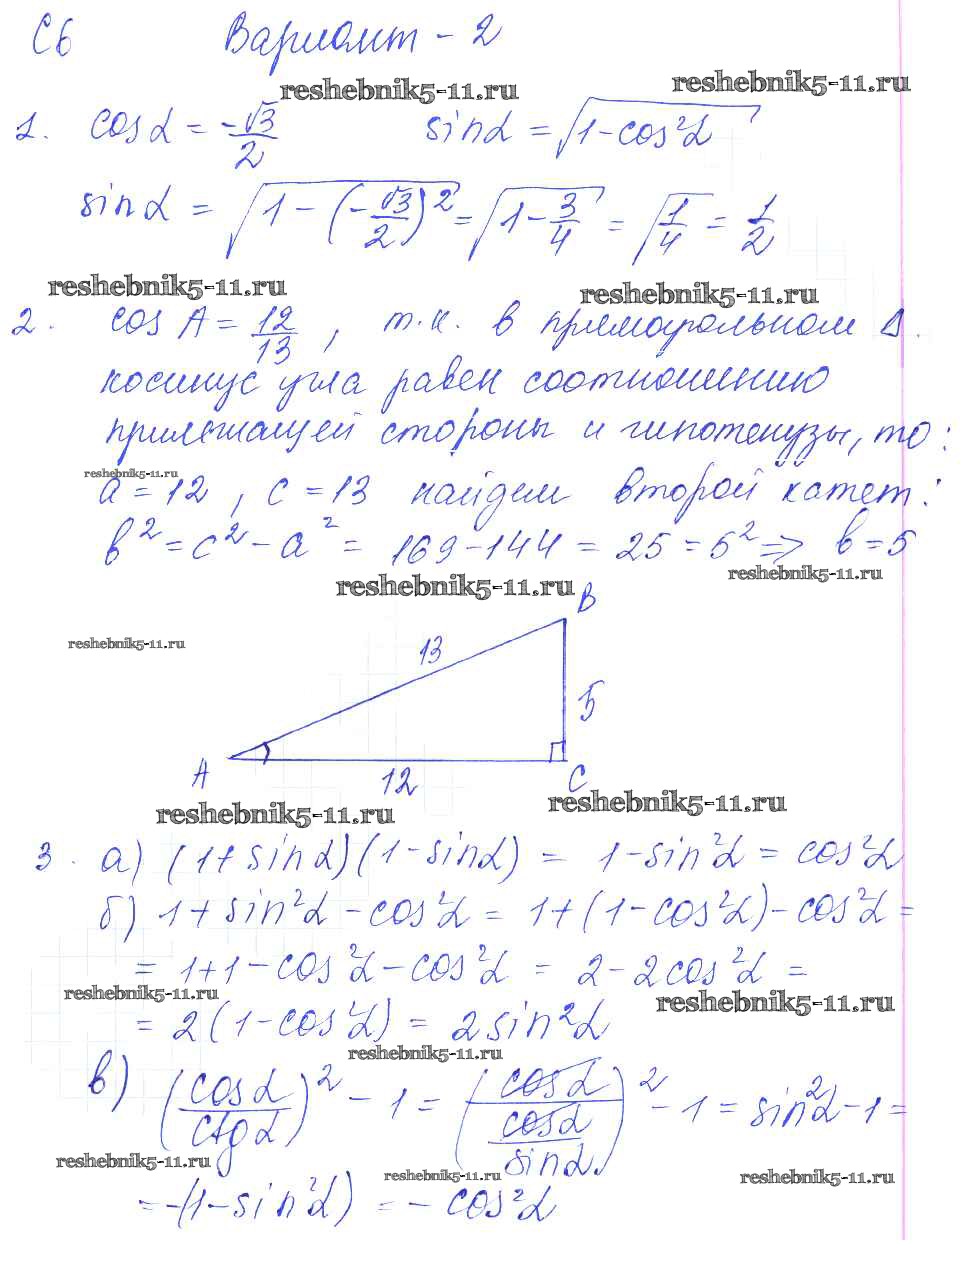 С6 Вариант - 2
reshebnik5-11.ru reshebnik5-11.ru
1. cosα = -√3/2 sinα = √(1-cos²α)
sinα = √(1-(-√3/2)²) = √(1-3/4) = √(1/4) = 1/2
reshebnik5-11.ru reshebnik5-11.ru
2. cos A = 12/13, т.к. в прямоугольном Δ.
косинус угла равен соотношению
прилежащей стороны и гипотенузы, то:
reshebnik5-11.ru
a = 12, c = 13 найдем второй катет:
b² = c² - a² = 169 - 144 = 25 = 5² => b = 5
reshebnik5-11.ru
reshebnik5-11.ru
B
reshebnik5-11.ru
13
5
A
12
C
reshebnik5-11.ru reshebnik5-11.ru
3. а) (1+sinα)(1-sinα) = 1-sin²α = cos²α
б) 1+sin²α - cos²α = 1+(1-cos²α)-cos²α =
= 1+1-cos²α-cos²α = 2-2cos²α =
reshebnik5-11.ru reshebnik5-11.ru
= 2(1-cos²α) = 2sin²α
reshebnik5-11.ru
в) (cosα/ctgα)² - 1 = (cosα/(cosα/sinα))² - 1 = sin²α - 1 =
reshebnik5-11.ru reshebnik5-11.ru reshebnik5-11.ru
= -(1-sin²α) = -cos²α